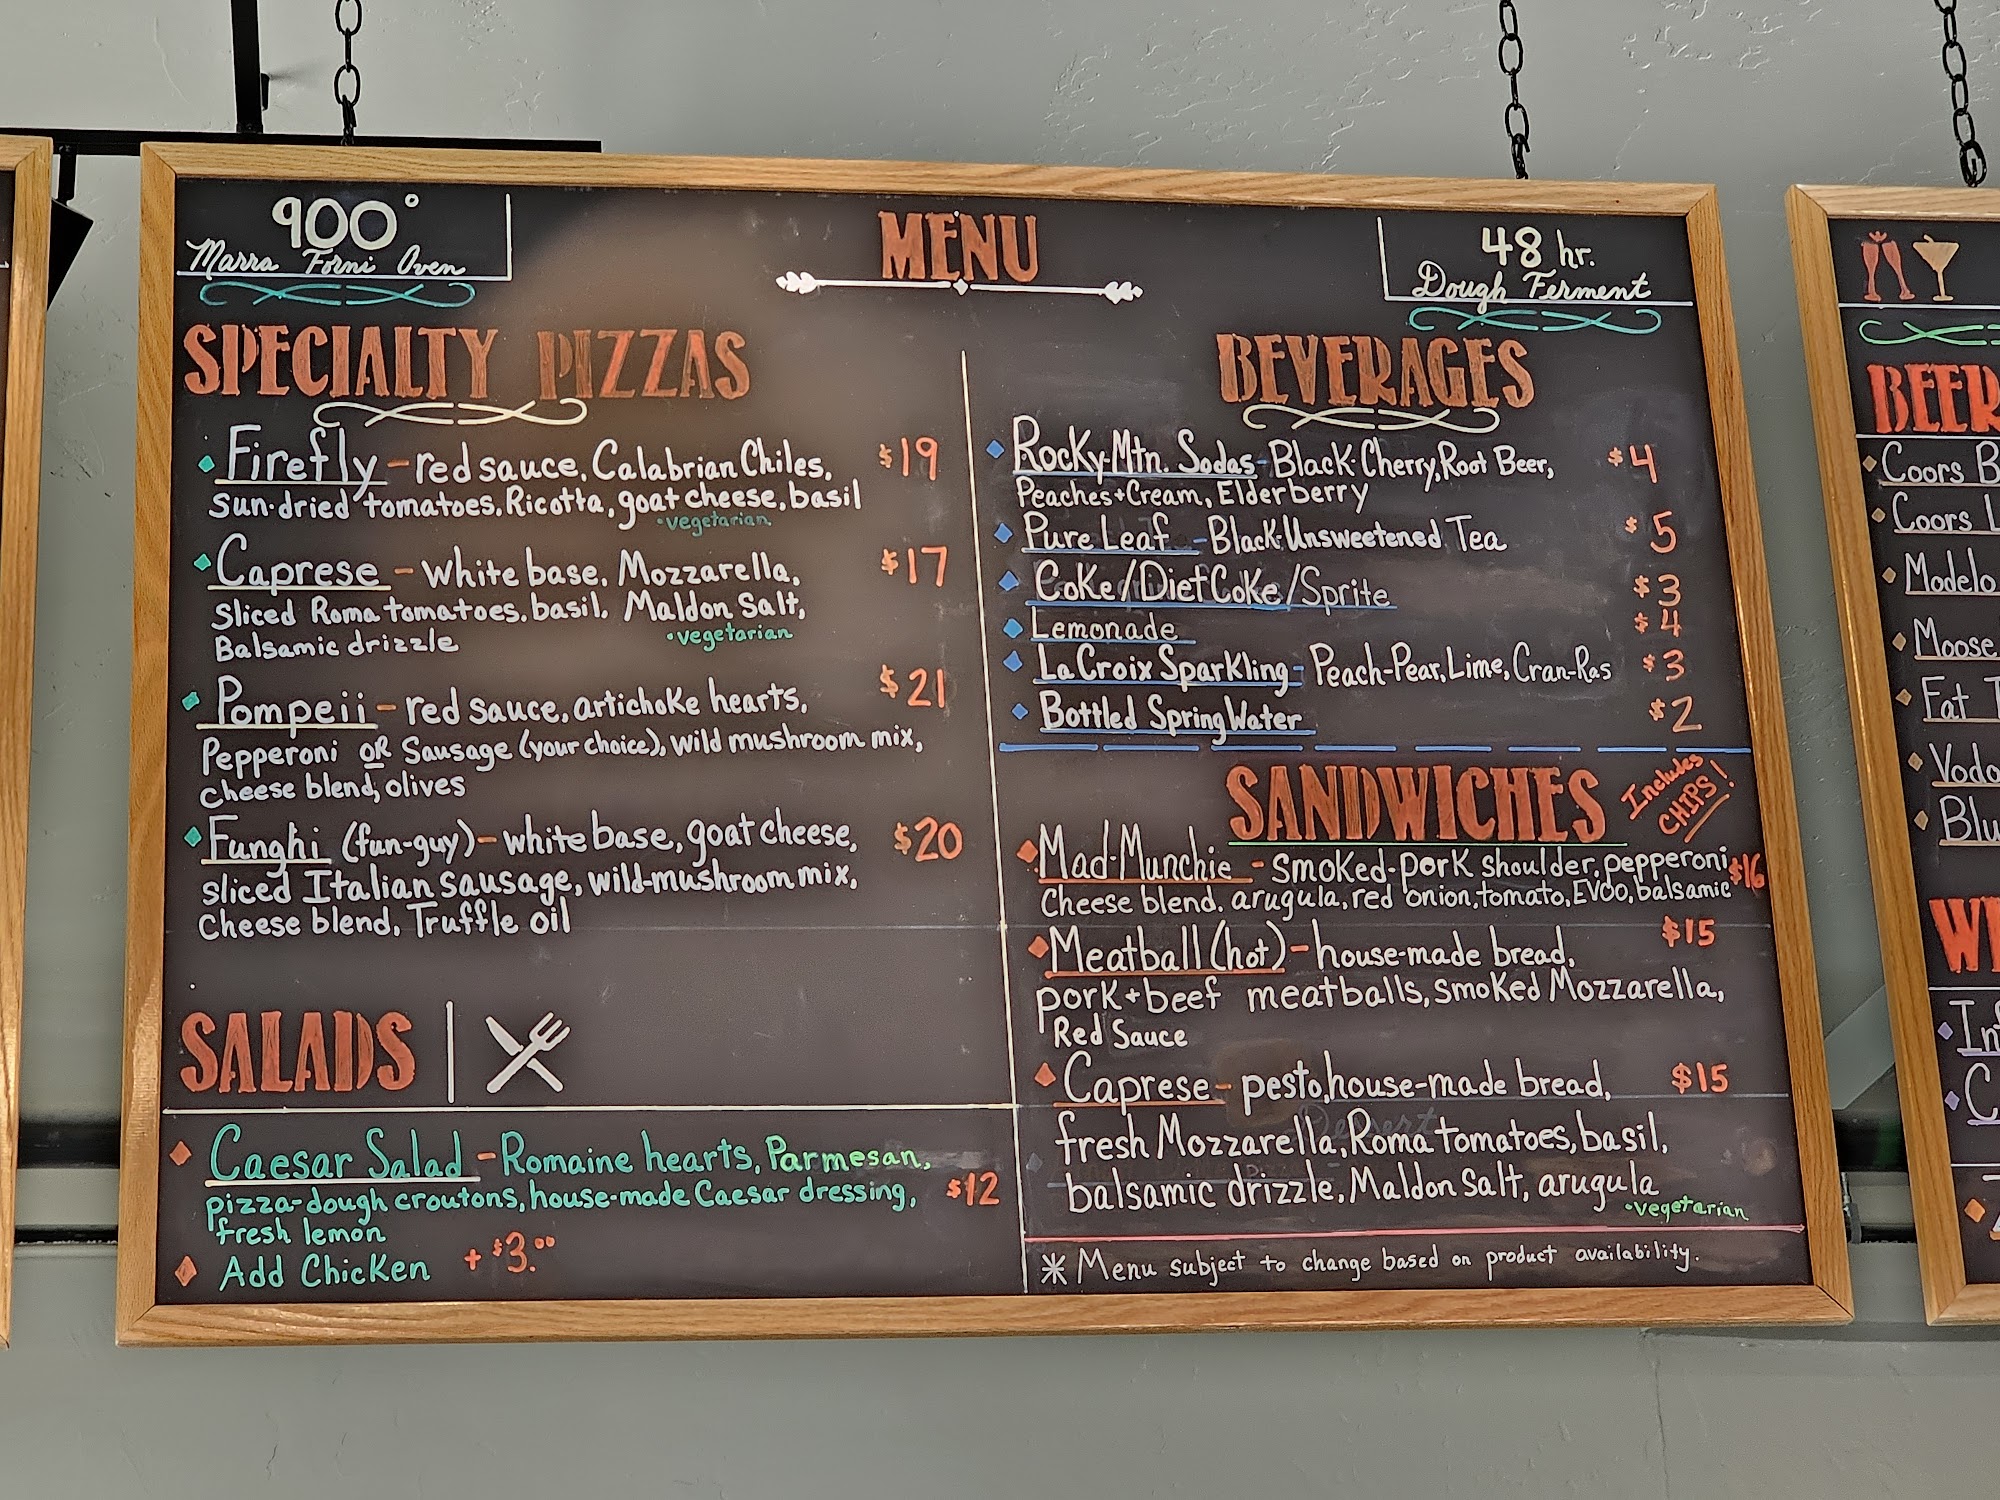 900°
Marra Forni Oven
MENU
48 hr.
Dough Ferment
SPECIALTY PIZZAS
Firefly - red sauce, Calabrian Chiles, $19
sun-dried tomatoes, Ricotta, goat cheese, basil
·vegetarian
Caprese - white base, Mozzarella, $17
sliced Roma tomatoes, basil, Maldon Salt,
Balsamic drizzle
·vegetarian
Pompeii - red sauce, artichoke hearts, $21
Pepperoni OR Sausage (your choice), wild mushroom mix,
cheese blend, olives
Funghi (fun-guy) - white base, goat cheese, $20
sliced Italian sausage, wild-mushroom mix,
Cheese blend, Truffle oil
SALADS
Caesar Salad - Romaine hearts, Parmesan,
pizza-dough croutons, house-made Caesar dressing, $12
fresh lemon
Add Chicken + $3.00
BEVERAGES
Rocky Mtn. Sodas - Black Cherry, Root Beer, $4
Peaches + Cream, Elderberry
Pure Leaf - Black Unsweetened Tea $5
Coke/Diet Coke/Sprite $3
Lemonade $4
La Croix Sparkling - Peach-Pear, Lime, Cran-Ras $3
Bottled Spring Water $2
SANDWICHES
Includes
CHIPS!
Mad-Munchie - smoked-pork shoulder, pepperoni, $16
Cheese blend, arugula, red onion, tomato, EVOO, balsamic
Meatball (hot) - house-made bread, $15
pork + beef meatballs, smoked Mozzarella,
Red Sauce
Caprese - pesto, house-made bread, $15
fresh Mozzarella, Roma tomatoes, basil,
balsamic drizzle, Maldon Salt, arugula
·vegetarian
* Menu subject to change based on product availability.
BEER
Coors B
Coors L
Modelo
Moose
Fat T
Vodo
Blu
WI
Inf
C